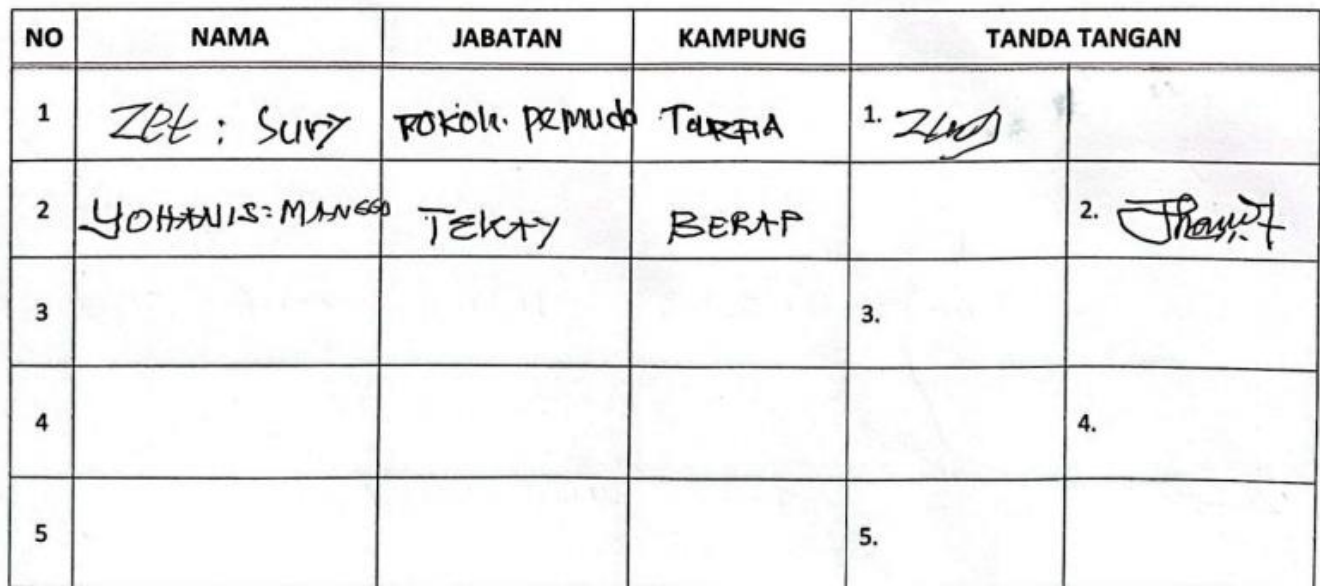 NO NAMA JABATAN KAMPUNG TANDA TANGAN
1 Zet : Sury TOKOH. Pemuda TARFIA 1.
2 YOHANIS: MANGGO TEKAY BERAP 2.
3 3.
4 4.
5 5.